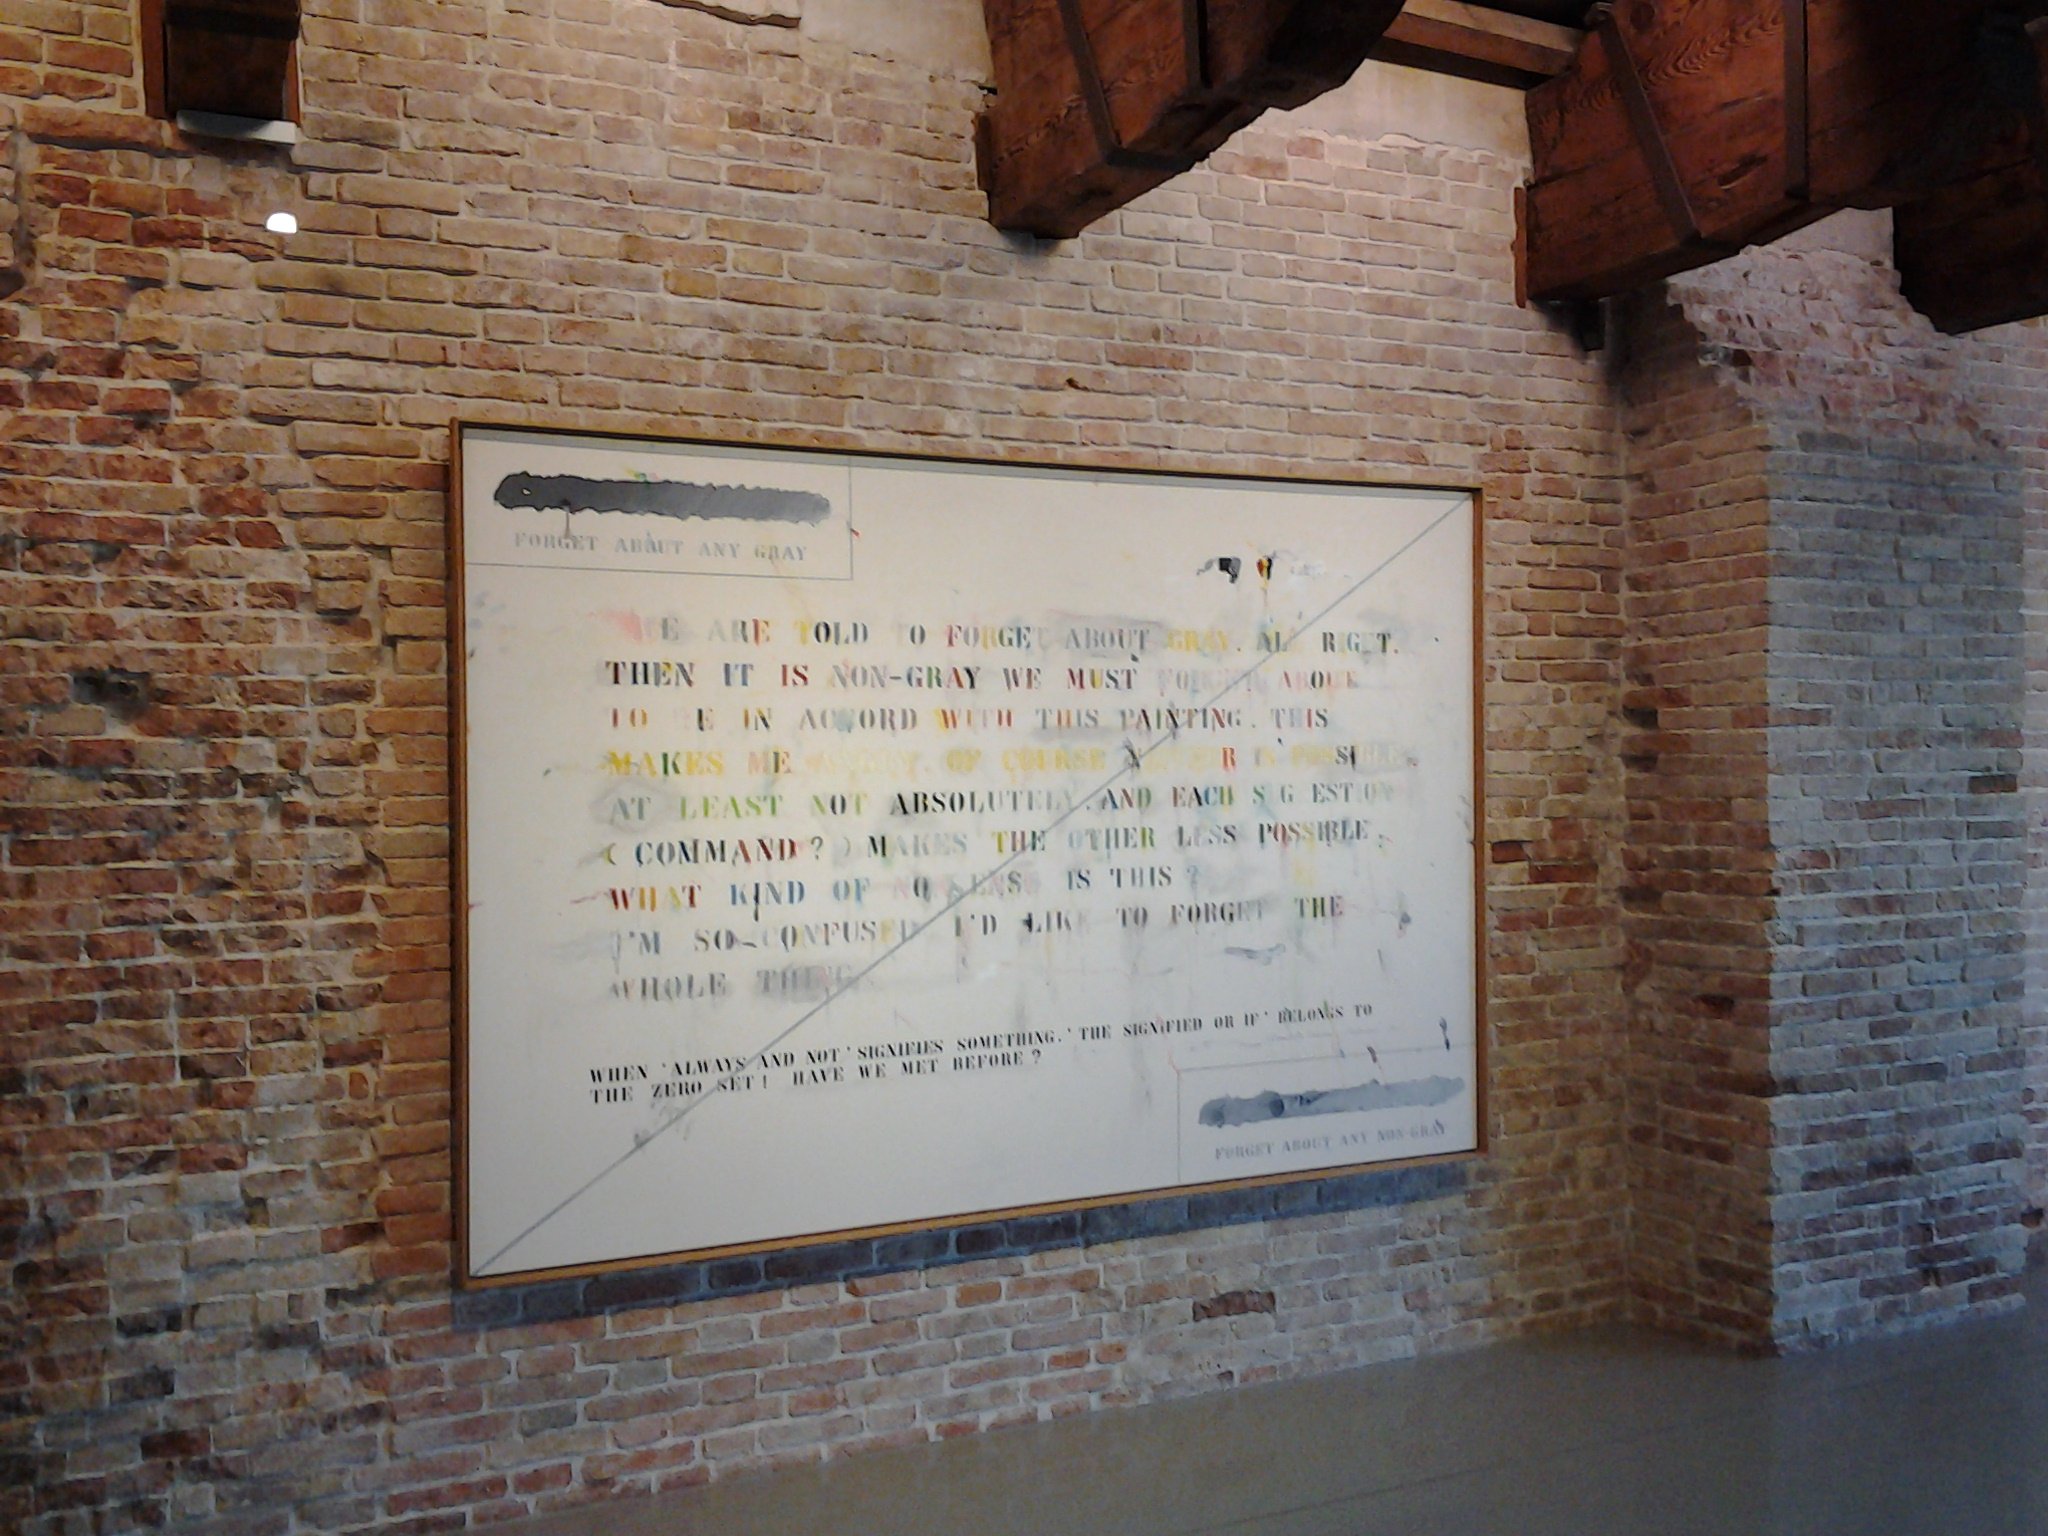 FORGET ABOUT ANY GRAY
WE ARE TOLD TO FORGET ABOUT GRAY. ALL RIGHT.
THEN IT IS NON-GRAY WE MUST FORGET ABOUT
TO BE IN ACCORD WITH THIS PAINTING. THIS
MAKES ME OF COURSE NEITHER IS POSSIBLE
AT LEAST NOT ABSOLUTELY. AND EACH SUGGESTION
(COMMAND?) MAKES THE OTHER LESS POSSIBLE.
WHAT KIND OF NONSENSE IS THIS?
I'M SO CONFUSED I'D LIKE TO FORGET THE
WHOLE THING.
WHEN 'ALWAYS AND NOT' SIGNIFIES SOMETHING. 'THE SIGNIFIED OR IF' BELONGS TO
THE ZERO SET! HAVE WE MET BEFORE?
FORGET ABOUT ANY NON-GRAY